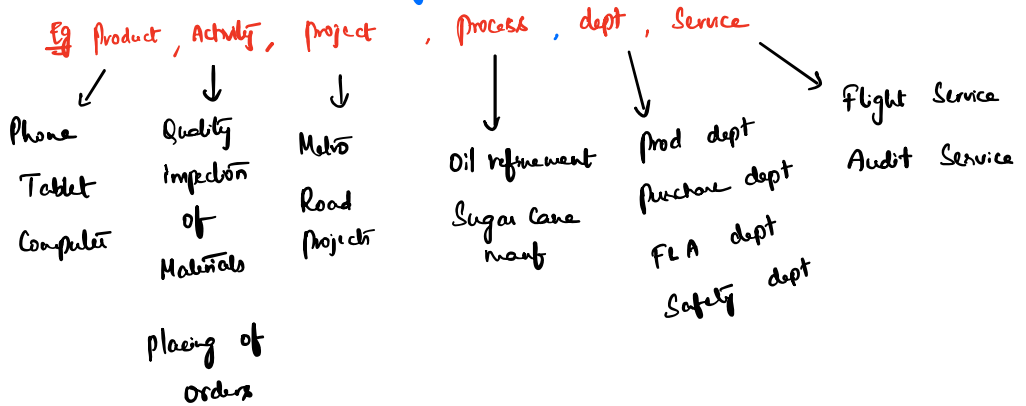 Eg Product, Activity, Project, Process, dept, Service
Phone
Tablet
Computer
Quality
inspection
of
Materials
Placing of
orders
Metro
Road
Projects
Oil refinement
Sugar Cane
manf
Prod dept
Purchase dept
F&A dept
Safety dept
Flight Service
Audit Service